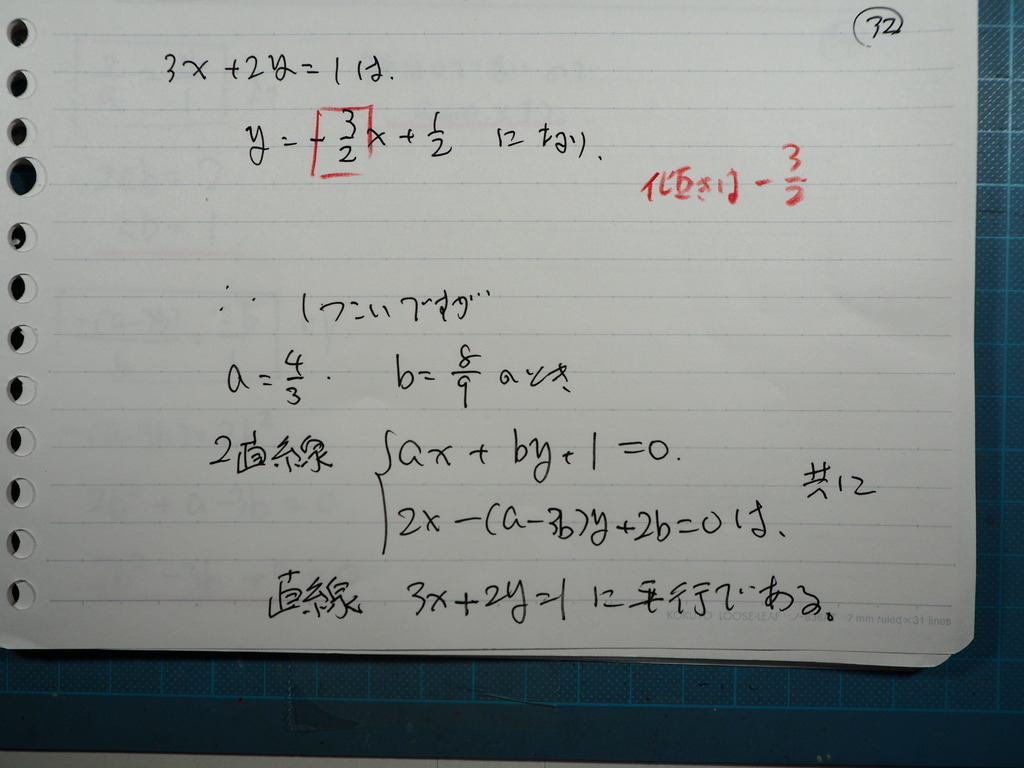 32
3x+2y=1は.
y=-3/2x+1/2 になり、
傾きは -3/2
∵ しつこいですが…
a=4/3. b=8/9 のとき
2直線 { ax+by+1=0.
2x-(a-3b)y+2b=0は、 共に
直線 3x+2y=1に平行である。
KOKUYO LOOSE-LEAF 7 mm ruled×31 lines